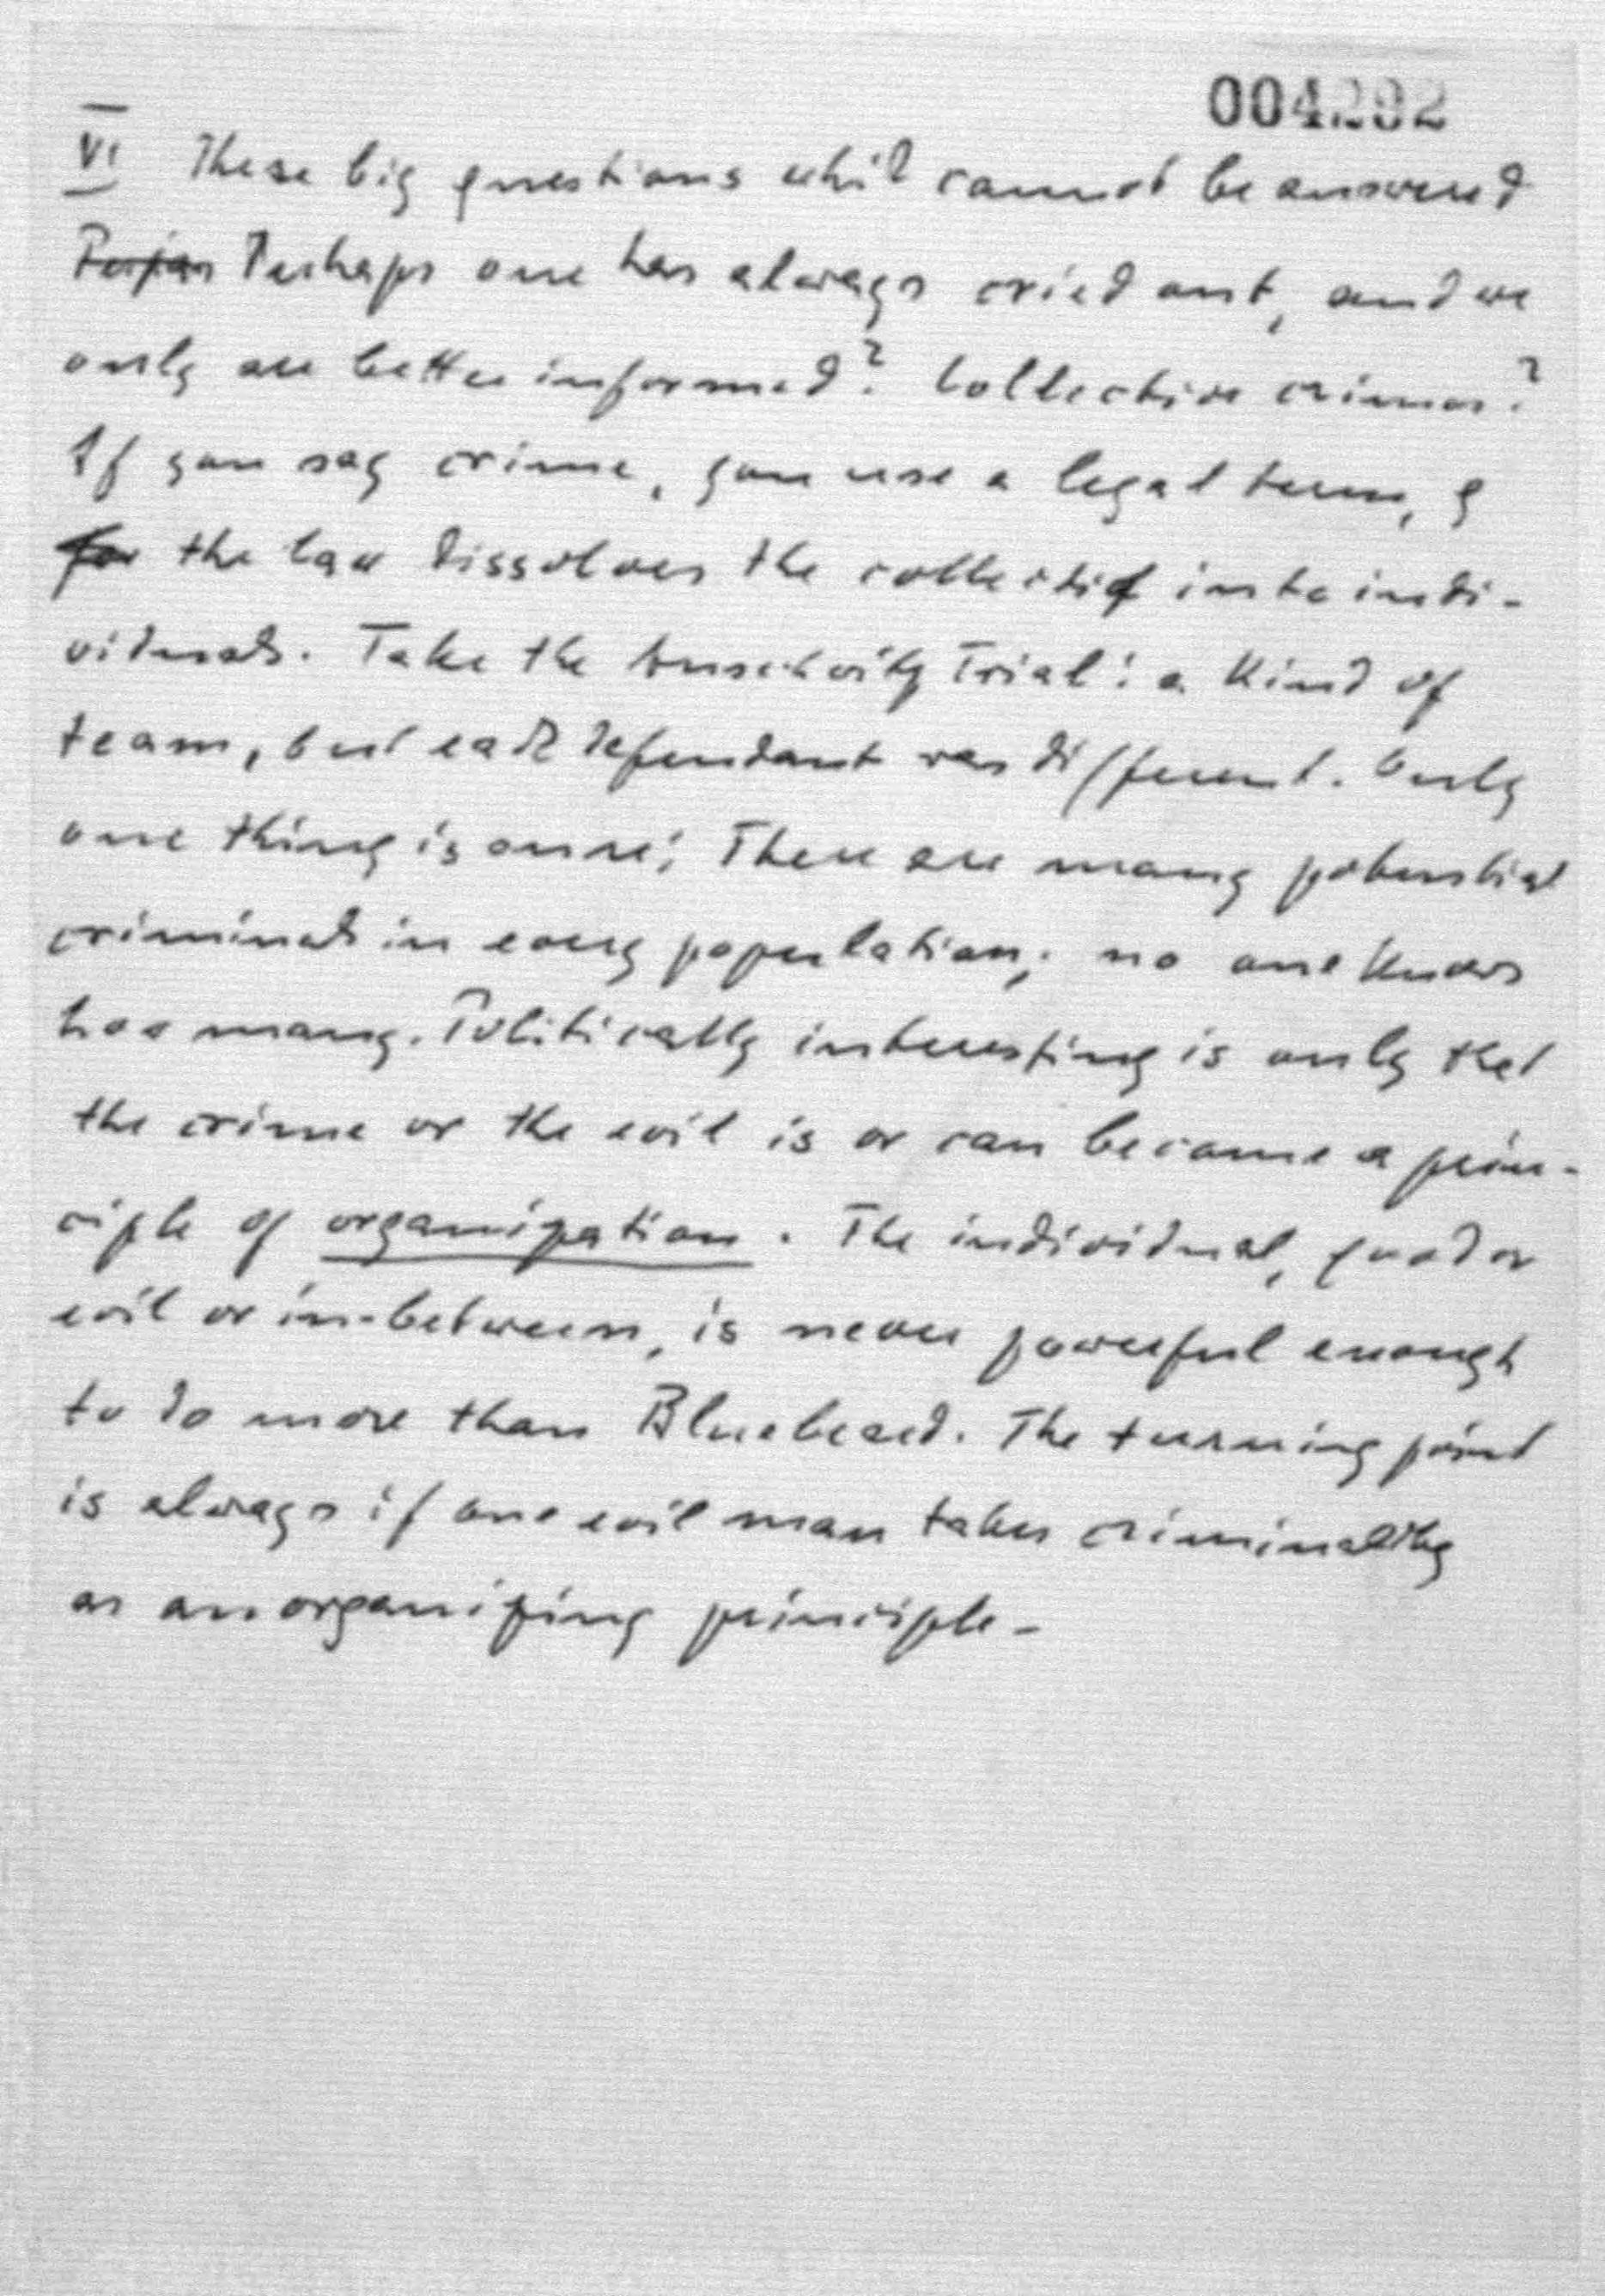 004292
VI These big questions which cannot be answered
Perhaps one has always cried out, and we
only are better informed? Collective crimes?
If you say crime, you use a legal term, &
for the law dissolves the collectif into indi-
viduals. Take the Auschwitz Trial: a kind of
team, but each defendant was different. Only
one thing is sure: There are many potential
criminals in every population; no one knows
how many. Politically interesting is only that
the crime or the evil is or can become a prin-
ciple of organization. The individual, good or
evil or in-between, is never powerful enough
to do more than Bluebeard. The turning point
is always if one evil man takes criminality
as an organizing principle-